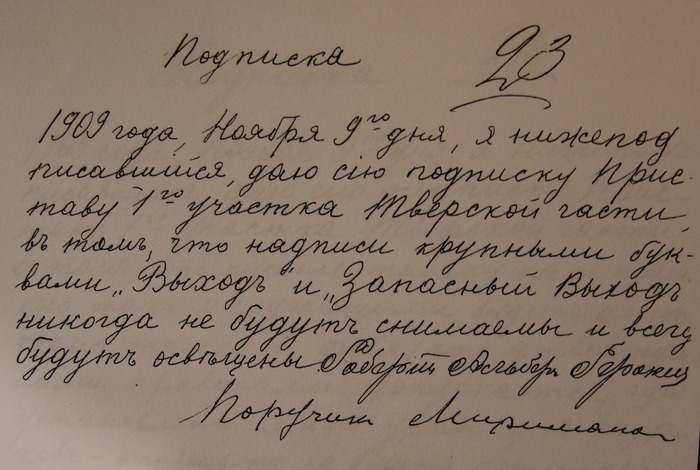 Подписка 23
1909 года, Ноября 9го дня, я нижепод
писавшійся, даю сію подписку Прис-
таву 1го участка Тверской части,
въ томъ, что надписи крупными бук-
вами „Выходъ" и „Запасный Выходъ
никогда не будутъ снимаемы и всегд
будутъ освѣщены Роберт Альбер
Поручик